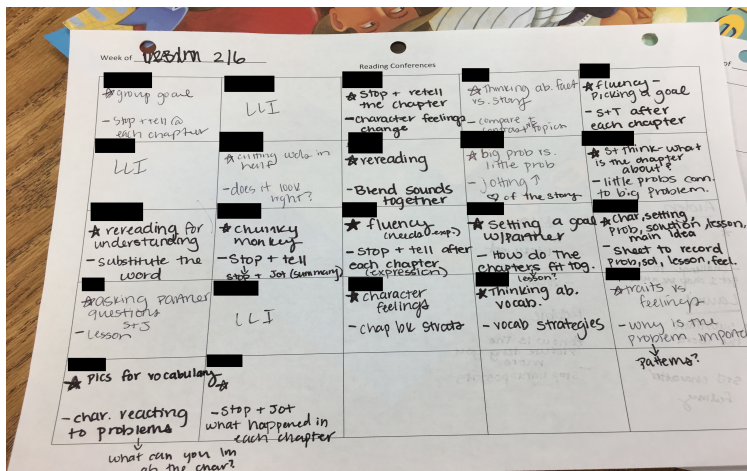 Week of 2/6
Reading Conferences
☆ group goal
- Stop + tell @
each chapter
LLI
☆ Stop + retell
the chapter
- character feelings
change
☆ Thinking ab. fact
vs. story
- compare +
contrast topics
☆ fluency -
picking a goal
- S+T after
each chapter
LLI
☆ cutting words in
half
- does it look
right?
☆ rereading
- Blend sounds
together
☆ big prob vs.
little prob
- jotting ↑
♡ of the story
☆ S+Think - what
is the chapter
about?
- little probs conn.
to big problem.
☆ rereading for
understanding
- substitute the
word
☆ chunky
monkey
- Stop + tell
↓
stop + Jot (summary)
☆ fluency
(needs exp.)
- Stop + tell after
each chapter
(expression)
☆ Setting a goal
w/partner
- How do the
chapters fit tog.
lesson?
☆ Char, setting,
prob, solution, lesson,
main idea
- Sheet to record
prob, sol, lesson, feel.
☆ asking partner
questions
S+J
- Lesson
LLI
☆ character
feelings
- chap bk strats
☆ Thinking ab.
vocab.
- vocab strategies
☆ traits vs
feelings
- why is the
problem
↓
patterns?
☆ pics for vocabulary
- char. reacting
to problems
↓
what can you
ab the char?
☆
- Stop + Jot
what happened in
each chapter